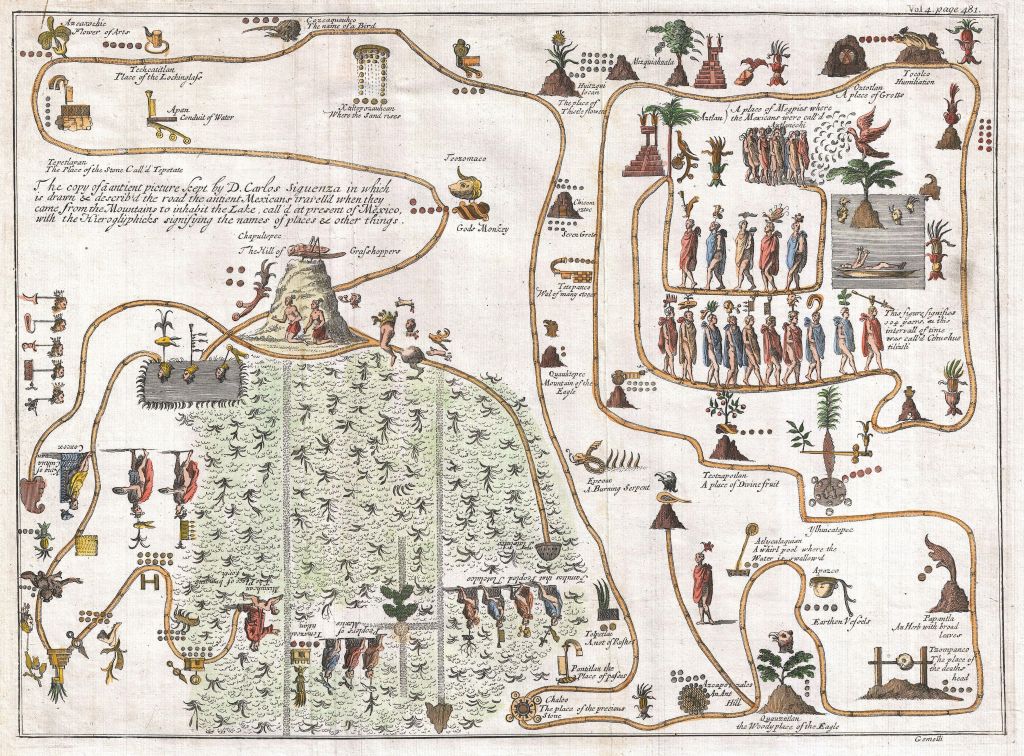 Vol. 4. page 481.
Azcaxochic
Flower of Arts
Cozcaquauhco
The name of a Bird
Techcatitlan
Place of the Lookinglass
Apan
Conduit of Water
Xaltepozauhcan
Where the Sand rises
Tepetlapan
The Place of the Stone Call'd Tepetate
The copy of a antient picture kept by D. Carlos Siguenza in which
is drawn & describ'd the road the antient Mexicans travell'd when they
came from the Mountains to inhabit the Lake, call'd at present of Mexico,
with the Hieroglyphicks signifying the names of places & other things.
Teozomaco
Gods Monkey
Chapultepec
The Hill of Grasshoppers
Huitzqui
locan
The place of
Thistle flowers
Mizquiahoala
Oztotlan
A place of Grotts
Tocolco
Humiliation
Aztlan
A place of Magpies where
the Mexicans were call'd
Chicom
oztoc
Seven Grots
Tetepanco
Wal of many stones
Quauhtepec
Mountain of the
Eagle
This figure signifies
104 years, as this
intervall of time
was call'd
Epcoac
A Burning Serpent
Teotzapotlan
A place of Divine fruit
Ylhuicatepec
Atlycalaquian
A whirl pool where the
Water is swallow'd
Apazco
Earthen Vessels
Papantla
An Herb with broad
leaves
Tzompanco
The place of
the deaths
head
Tolpetlac
A nest of Rushes
Pantitlan the
Place of pasing
Chalco
The place of the precious
Stone
Azcapotzalco
An Ant
Hill
Quauztlan
the Woody place of the Eagle
Gemelli